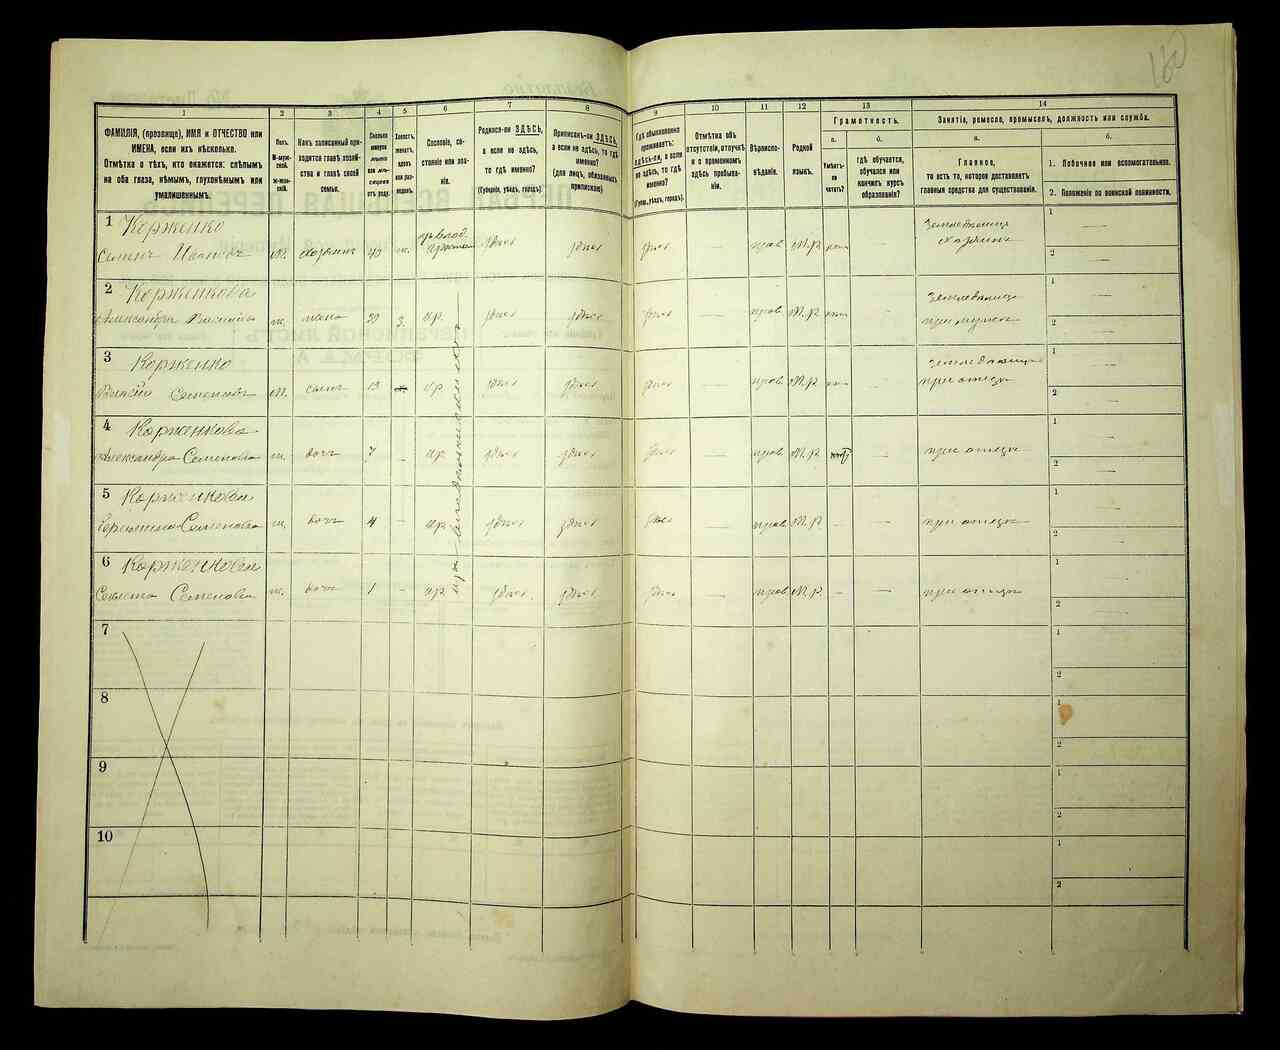 160
1
2
3
4
5
6
7
8
9
10
11
12
13
14
ФАМИЛІЯ, (прозвище), ИМЯ и ОТЧЕСТВО или
ИМЕНА, если ихъ нѣсколько.
Отмѣтка о тѣхъ, кто окажется: слѣпымъ
на оба глаза, нѣмымъ, глухонѣмымъ или
умалишеннымъ.
Полъ.
М-мужской.
Ж-женскій.
Какъ записанный приходится
главѣ хозяйства
и главѣ своей
семьи.
Сколько
минуло
лѣтъ
или мѣсяцевъ
отъ роду.
Холостъ,
женатъ,
вдовъ
или разведенъ.
Сословіе, состояніе
или званіе.
Родился-ли ЗДѢСЬ,
а если не здѣсь,
то гдѣ именно?
(Губернія, уѣздъ, городъ).
Приписанъ-ли ЗДѢСЬ,
а если не здѣсь, то гдѣ
именно?
(для лицъ, обязанныхъ
припискою)
Гдѣ обыкновенно
проживаетъ:
здѣсь-ли, а если
не здѣсь, то гдѣ
именно?
(Губерн., уѣздъ, городъ).
Отмѣтка объ
отсутствіи, отлучкѣ
и о временномъ
здѣсь пребываніи.
Вѣроисповѣданіе.
Родной
языкъ.
Грамотность.
а.
Умѣетъ-ли
читать?
б.
гдѣ обучается,
обучался или
кончилъ курсъ
образованія?
Занятіе, ремесло, промыселъ, должность или служба.
а.
Главное,
то есть то, которое доставляетъ
главныя средства для существованія.
б.
1. Побочное или вспомогательное.
2. Положеніе по воинской повинности.
1 Корженко
Семенъ Ивановъ м. хозяинъ 40 ж. здѣсь здѣсь здѣсь — прав. М.р. нѣтъ — хозяинъ
1 —
2 —
2 Корженкова
Александра ж. жена 39 З. кр. здѣсь здѣсь здѣсь — прав. М.р. нѣтъ — при мужѣ
1 —
2 —
3 Корженко
Семеновъ м. сынъ кр. здѣсь здѣсь здѣсь — прав. М.р. — при отцѣ
1 —
2 —
4 Корженкова
Александра Семенова ж. дочь 7 — кр. здѣсь здѣсь здѣсь — прав. М.р. — при отцѣ
1 —
2 —
5 Корженкова
Семенова ж. дочь 4 — кр. здѣсь здѣсь здѣсь — прав. М.р. — — при отцѣ
1 —
2 —
6 Корженкова
Семенова ж. дочь 1 — кр. здѣсь здѣсь здѣсь — прав. М.р. — — при отцѣ
1 —
2 —
7
1
2
8
1
2
9
1
2
10
1
2